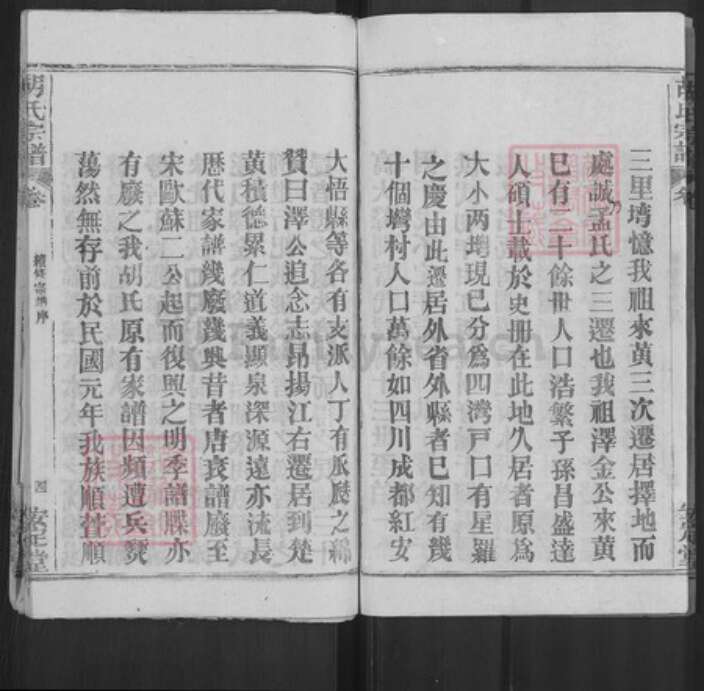 三里塆憶我祖來黃三次遷居擇地而
處誠孟氏之三遷也我祖澤金公來黃
已有二十餘世人口浩繁子孫昌盛達
人碩士載於史冊在此地久居者原為
大小两塆現已分為四灣戸口有星羅
之慶由此遷居外省外縣者已知有幾
十個塆村人口萬餘如四川成都紅安
大悟縣等各有支派人丁有瓜瓞之綿
贊曰澤公追念志昂揚江右遷居到楚
黃積德累仁道義顯泉深源遠亦流長
歷代家譜幾廢幾興昔者唐衰譜廢至
宋歐蘇二公起而復興之明季譜牒亦
有廢之我胡氏原有家譜因頻遭兵燹
蕩然無存前於民國元年我族順晉順
續修宗譜序
四
胡氏宗譜
卷
安定堂